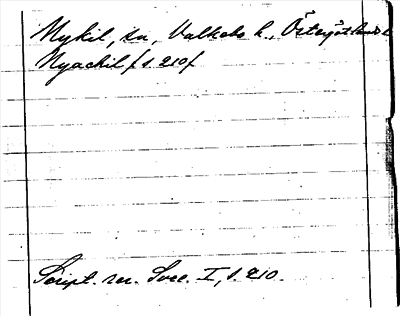 Nykil, sn, Valkebo h., Östergötlands l.
Nyackil f s. 210 f
Script. rer. Svec. I, s. 210.